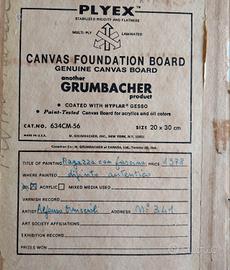 PLYEX™
STABILIZED RIGIDITY AND FLATNESS
MULTI-PLY LAMINATED
CANVAS FOUNDATION BOARD
GENUINE CANVAS BOARD
another
GRUMBACHER
product
• COATED WITH HYPLAR® GESSO
• Paint-Tested Canvas Board for acrylics and oil colors
CAT. NO. 634CM-56 SIZE 20 x 30 cm
M. GRUMBACHER, INC., NEW YORK, N.Y. 10001
TITLE OF PAINTING Ragazza con PRICE 1978
WHERE PAINTED dipinto autentico
ACRYLIC MIXED MEDIA USED
VARNISH RECORD
ARTIST Alfonso ADDRESS N° 341
ART SOCIETY AFFILIATIONS
EXHIBITION RECORD
PRIZES WON